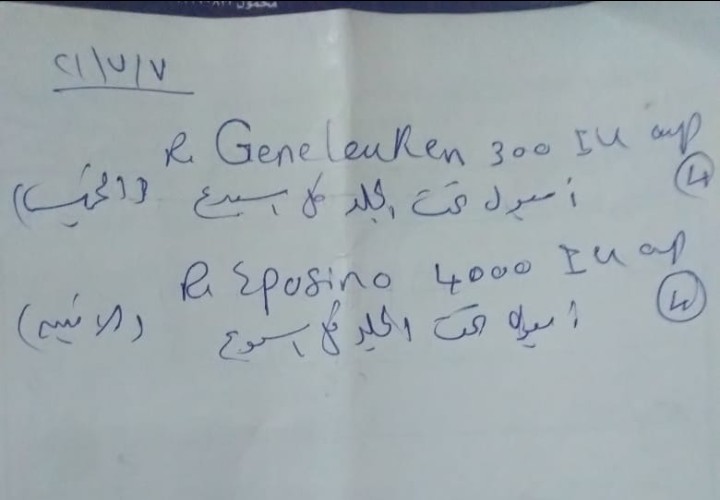 ٢١/٧/٧
R Geneleuken 300 IU amp
(4)
أمبول تحت الجلد كل اسبوع (الخميس)
R Eposino 4000 IU amp
(4)
أمبول تحت الجلد كل اسبوع (الاثنين)